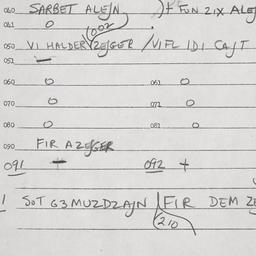 060 SARBET ALEJN )+ FUN 21X ALEJ
061 0
(002
050 VI HALDER ZEJGER / VIFL IDI CAJT
051
060 0 061 0
070 0 071 0
080 0 081 0
090 FIR A ZEJGER
091 + 092 +
1 SOT G3 MUZDZAJN FIR DEM ZE
(210